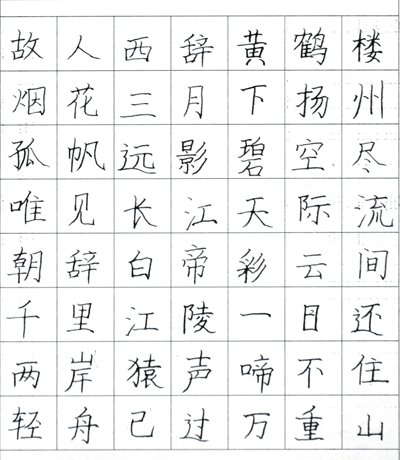 故人西辞黄鹤楼
烟花三月下扬州
孤帆远影碧空尽
唯见长江天际流
朝辞白帝彩云间
千里江陵一日还
两岸猿声啼不住
轻舟已过万重山